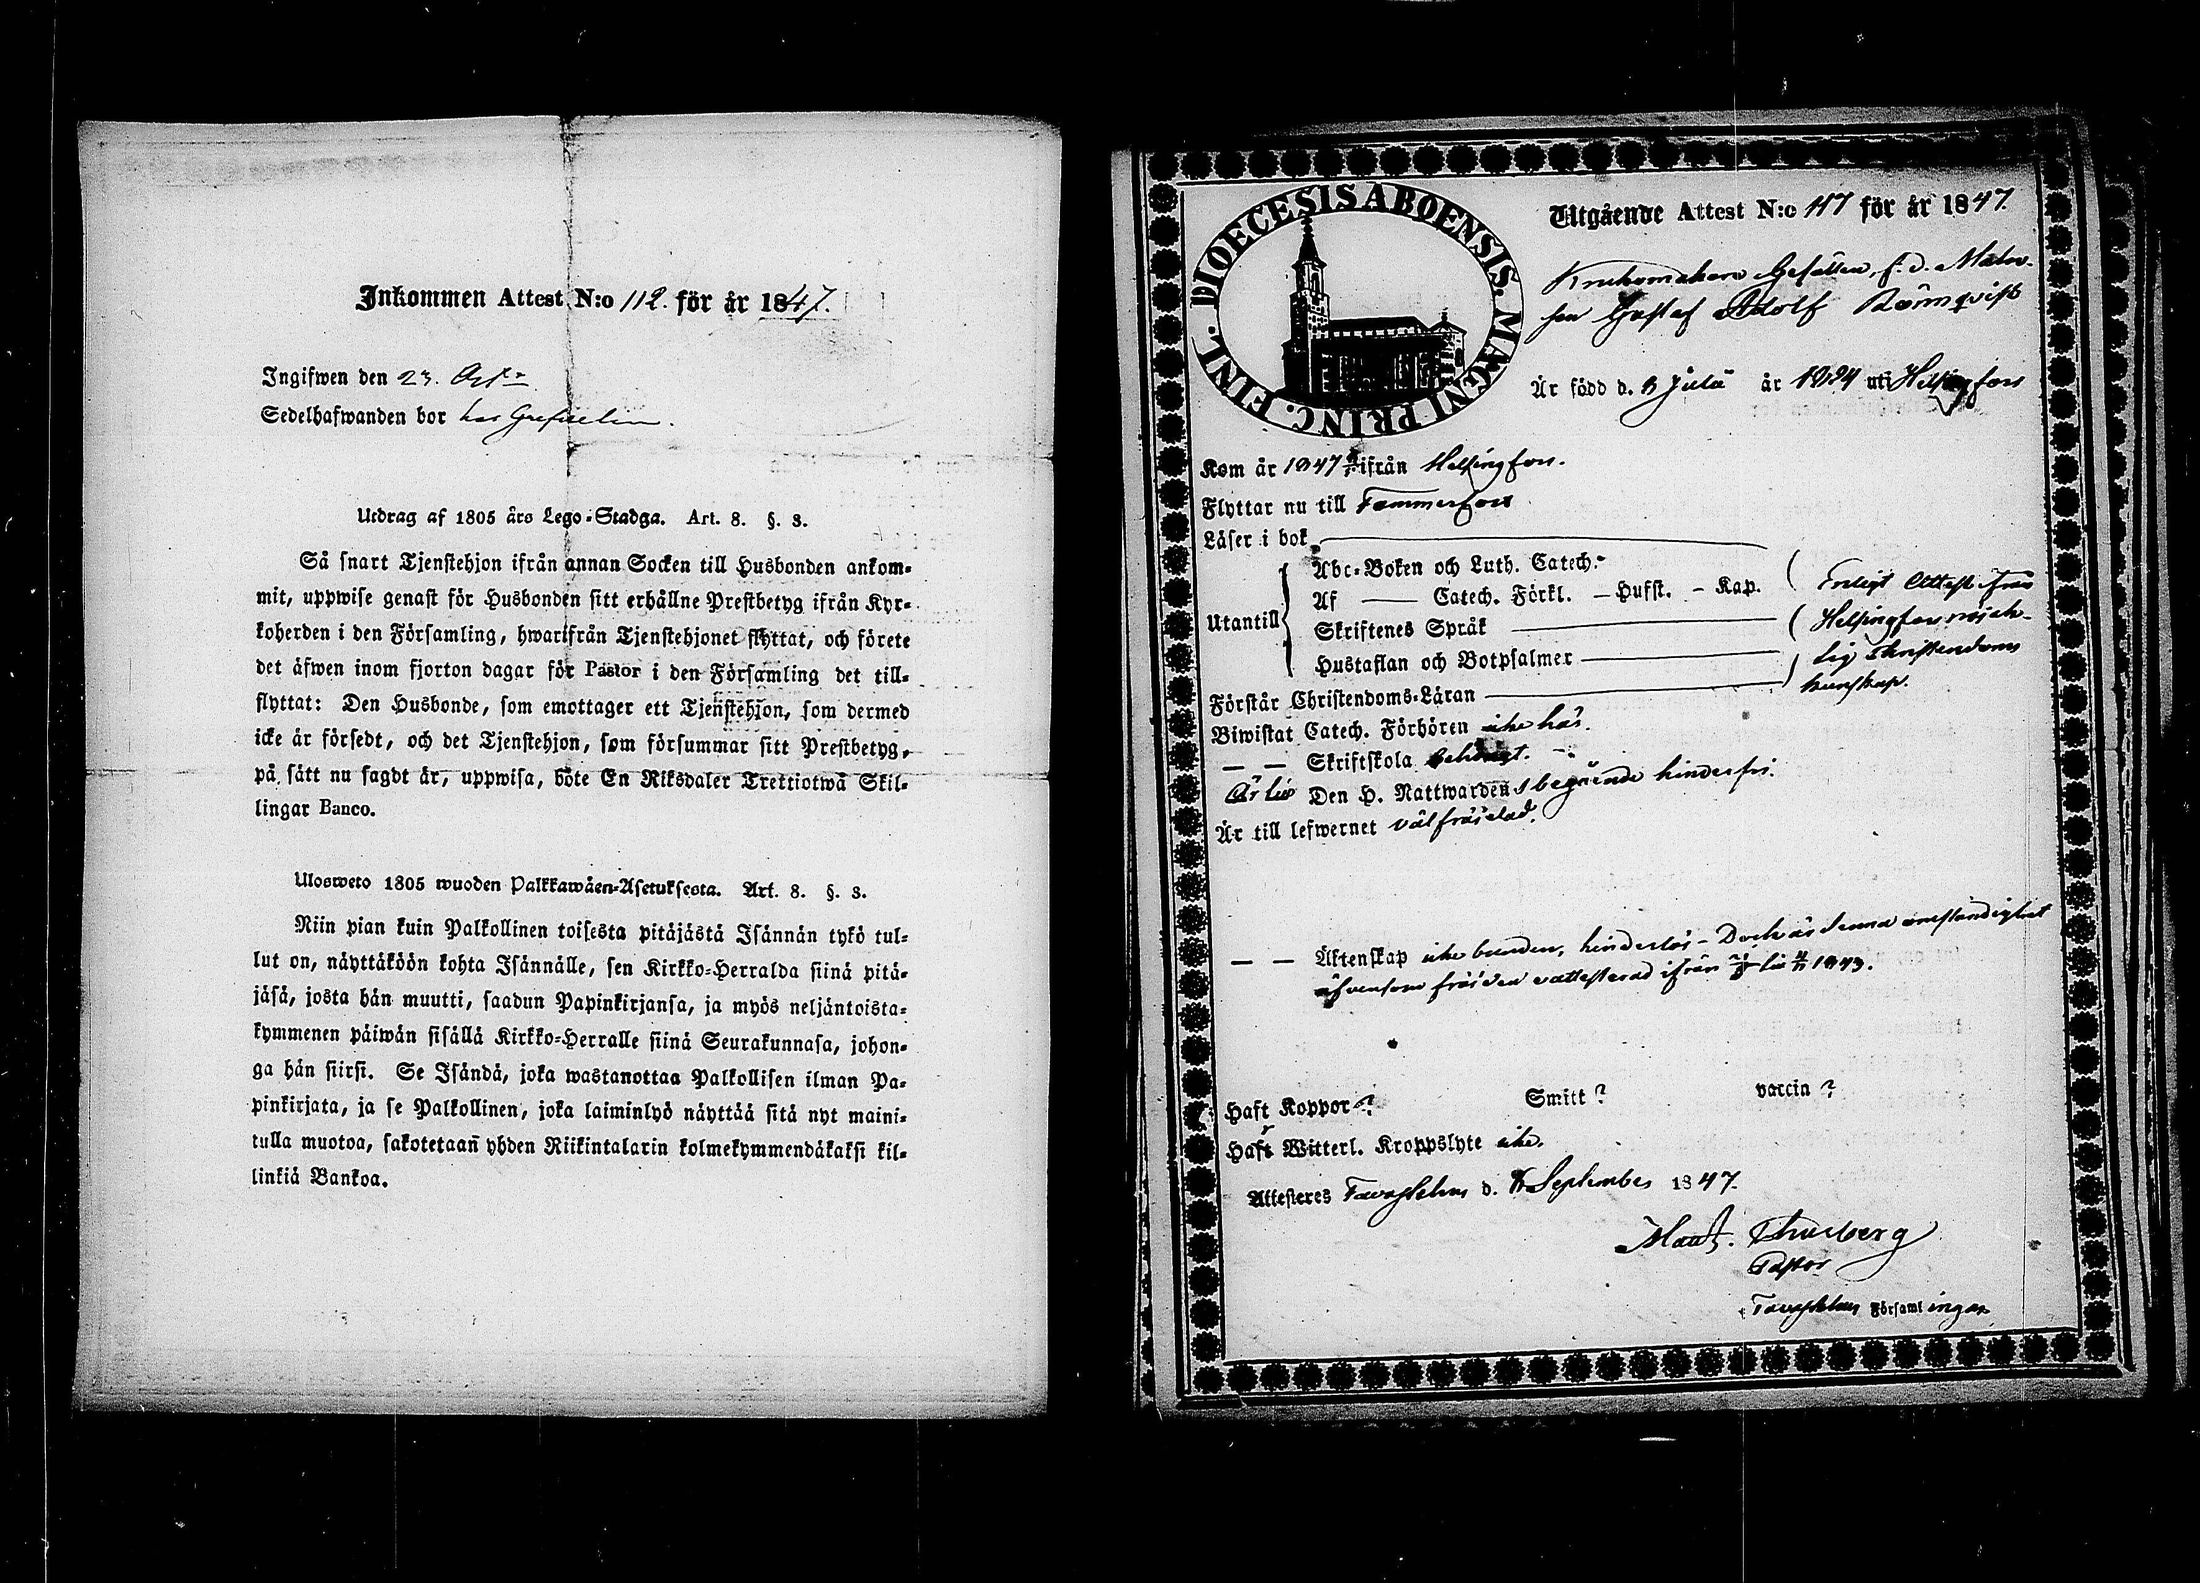 Inkommen Attest N:o 112. för år 1847.
Ingifwen den 23.
Sedelhafwanden bor hos
Utdrag af 1805 års Lego-Stadga. Art. 8. §. 3.
Så snart Tjenstehjon ifrån annan Socken till Husbonden ankom-
mit, uppwise genast för Husbonden sitt erhållne Prestbetyg ifrån Kyr-
koherden i den Församling, hwarifrån Tjenstehjonet flyttat, och förete
det äfwen inom fjorton dagar för Pastor i den Församling det till-
flyttat: Den Husbonde, som emottager ett Tjenstehjon, som dermed
icke är försedt, och det Tjenstehjon, som försummar sitt Prestbetyg,
på sätt nu sagdt är, uppwisa, böte En Riksdaler Trettiotwå Skil-
lingar Banco.
Ulosweto 1805 wuoden Palkkawäen-Asetuksesta. Art. 8. §. 3.
Niin pian kuin Palkollinen toisesta pitäjästä Isännän tykö tul-
lut on, näyttäköön kohta Isännälle, sen Kirkko-Herralda siinä pitä-
jäsä, josta hän muutti, saadun Papinkirjansa, ja myös neljäntoista-
kymmenen päiwän sisällä Kirkko-Herralle siinä Seurakunnasa, johon-
ga hän siirsi. Se Isändä, joka wastanottaa Palkollisen ilman Pa-
pinkirjata, ja se Palkollinen, joka laiminlyö näyttää sitä nyt maini-
tulla muotoa, sakotetaan yhden Riikintalarin kolmekymmendäkaksi kil-
linkiä Bankoa.
DIOECESIS ABOENSIS. MAGNI PRINC. FINL.
Utgående Attest N:o 117 för år 1847.
Krukomakare Gesällen, f. d. Målare-
son Gustaf Adolf Rönnqvist
Är född d. 3 Julii år 1824 uti Helsingfors
Kom år 1847 ifrån Helsingfors.
Flyttar nu till Tammerfors
Läser i bok
Abc-Boken och Luth. Catech.
Af — Catech. Förkl. — Hufst. - Kap.
Utantill
Skriftenes Språk
Hustaflan och Botpsalmer
Enligt Attest ifrån
Helsingfors nöjak-
lig Christendoms
kunskap.
Förstår Christendoms-Läran
Biwistat Catech. Förhören icke här.
— — Skriftskola behörigt.
Är till Den H. Nattwardens begående hinderfri.
Är till lefwernet välfräjdad.
— — Äktenskap icke bunden, hinderlös - Dock är denna omständighet
äfvensom fräjden oattesterad ifrån till 1843.
Haft Koppor? Smitt? vaccin?
Haft Witterl. Kroppslyte icke.
Attesteres Tavastehus d. September 1847.
Maut. Thurberg
Pastor
Tavastehus Församlingar